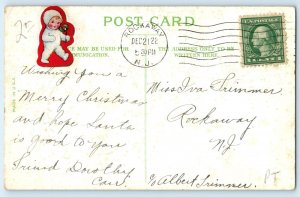 25
POST CARD
ROCKAWAY
DEC 21 22
5 30 PM
N.J.
MAY BE USED FOR
COMMUNICATION.
THE ADDRESS ONLY TO BE
WRITTEN HERE.
Wishing you a
Merry Christmas
and hope Santa
is good to you
Friend Dorothy
Miss Iva Trimmer
Rockaway
NJ
c/o Albert Trimmer.